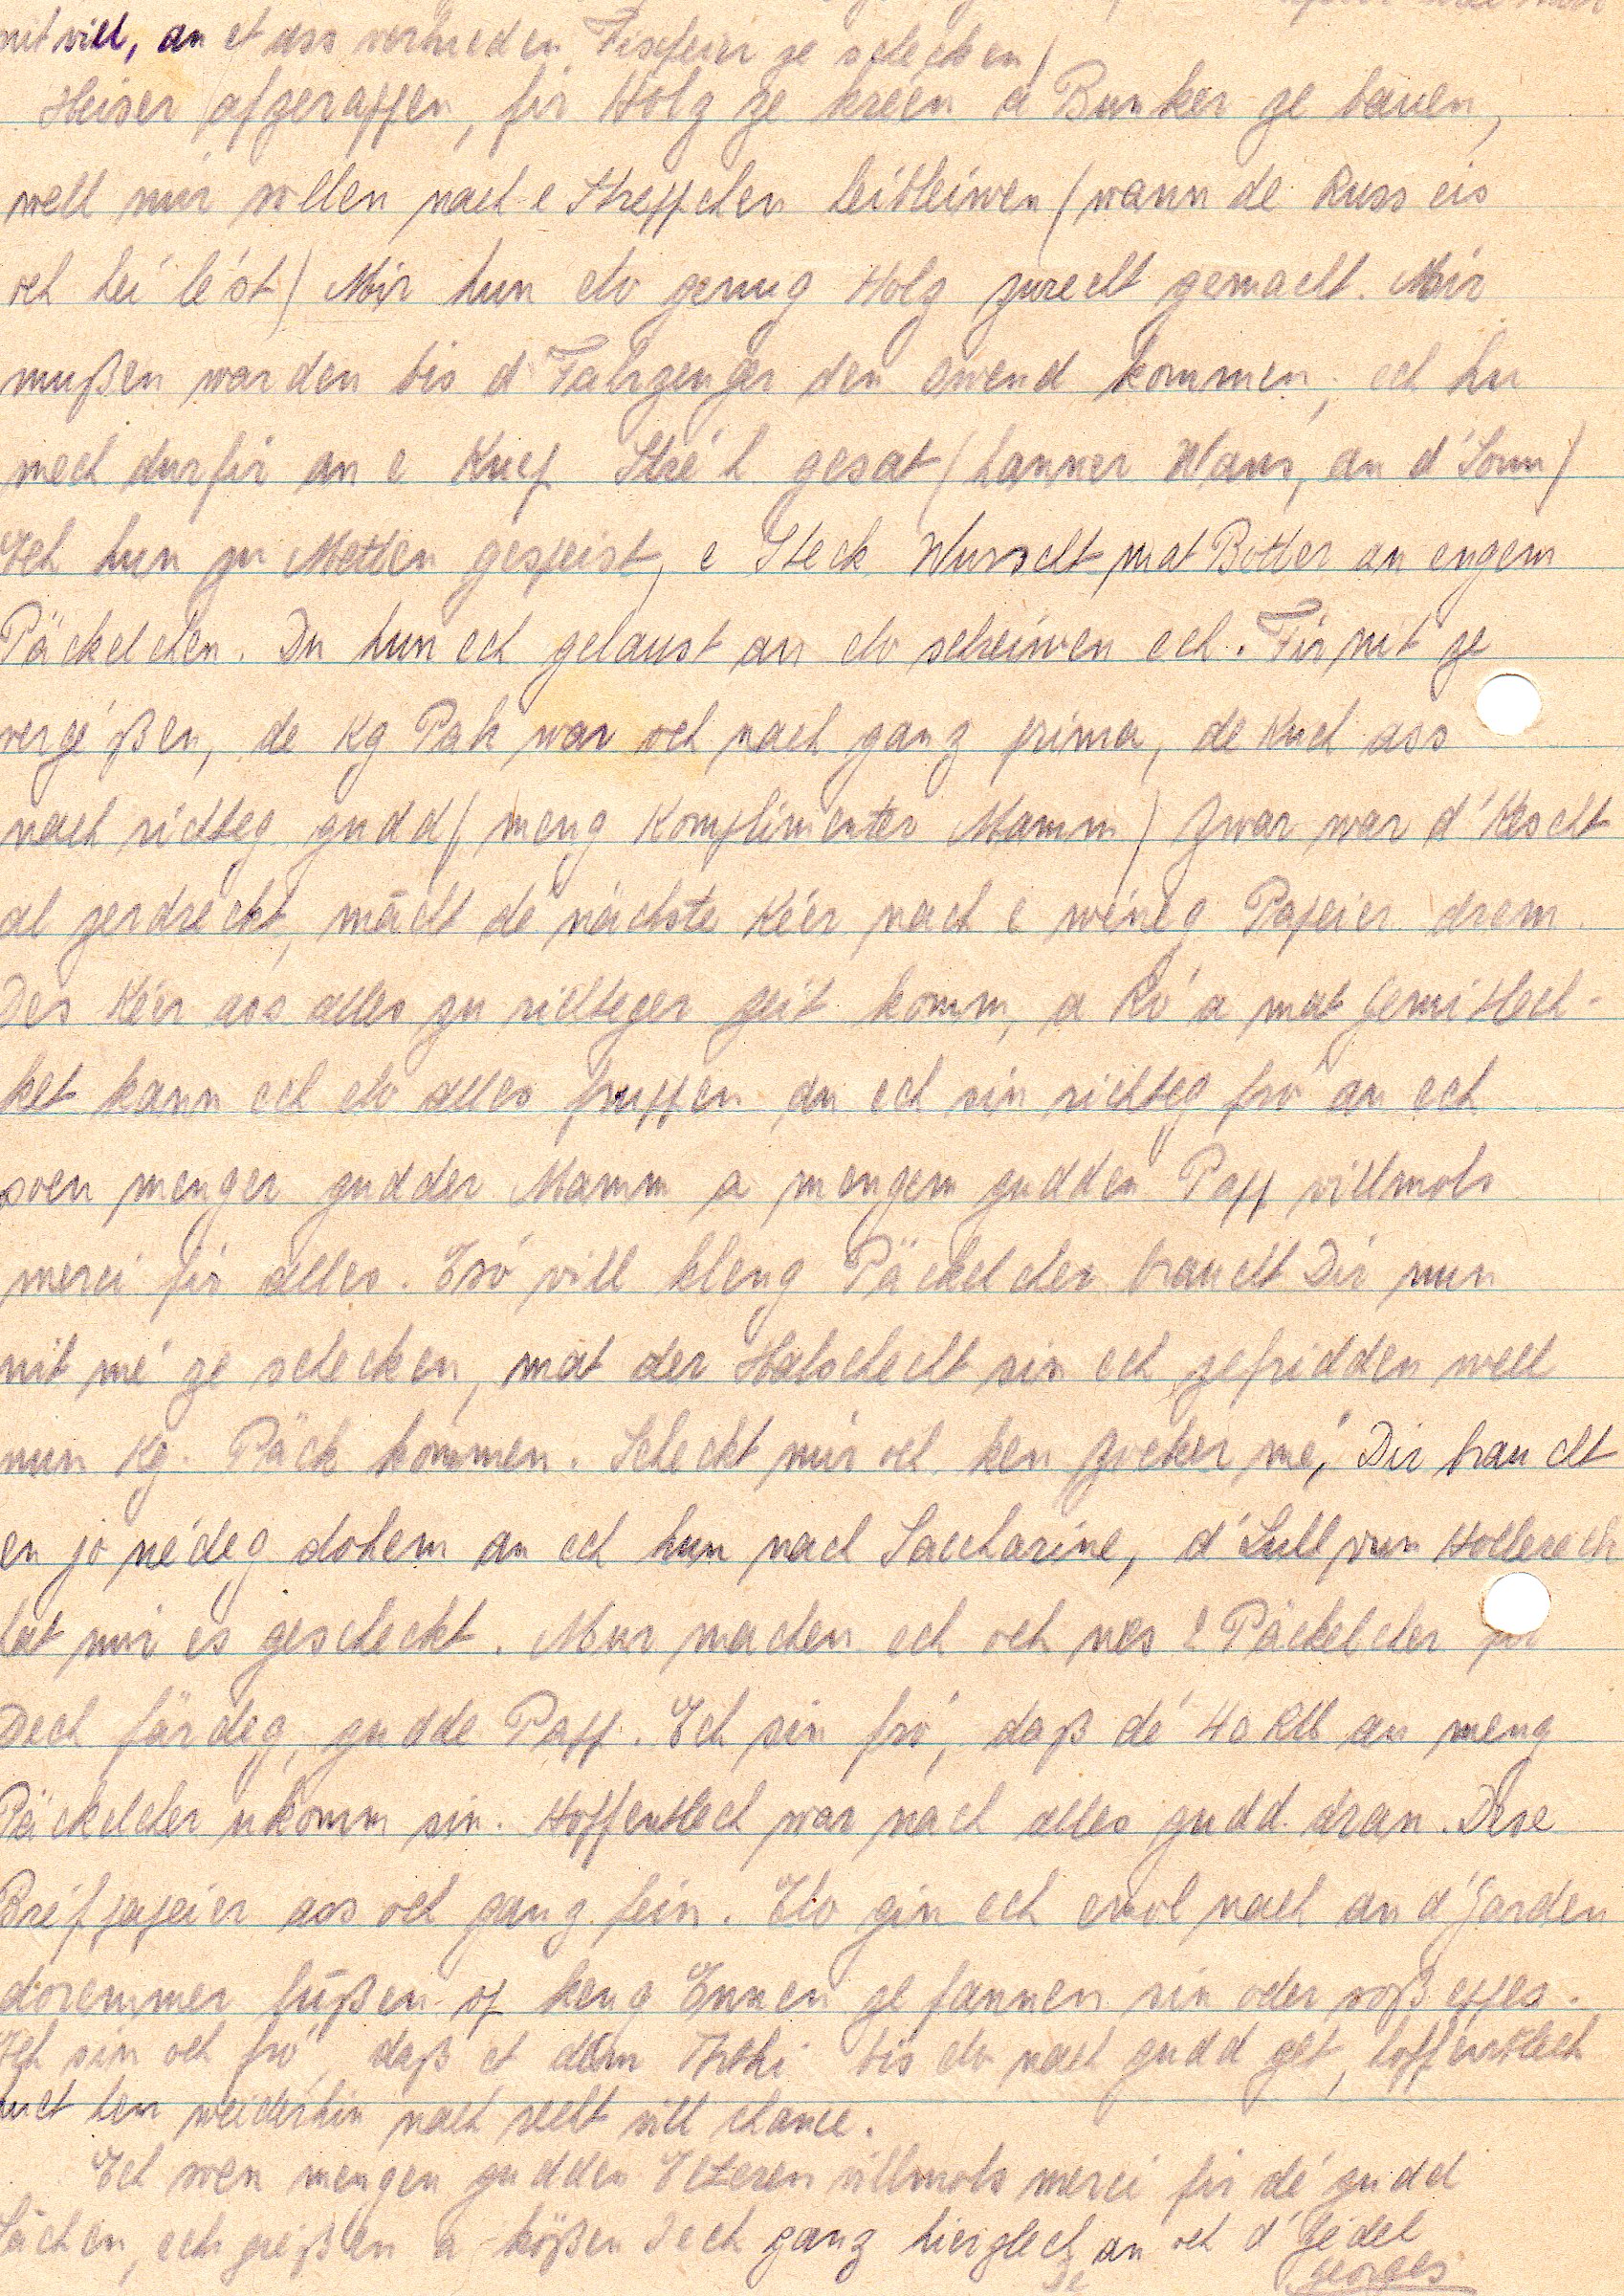 nit vill, an et ass verbueden Fischeier ze schécken)
Heiser ofgerappen, fir Holz ze kréen a Bunker ze bauen,
well mir sollen nach e Steppchen heibleiwen (wann de Russ eis
och hei lést) Mir hun elo genug Holz zurecht gemacht. Mir
mußen warden bis d'Fahrzeuger den Owend kommen, ech hu
mech durfir an e Kuep Stré'h gesat (hanner Wand, an d'Sonn)
Ech hun zu Metten gespeist, e Steck Wurscht mat Botter an engem
Päckelchen. Du hun ech gelaust an elo schreiwen ech. Fir nit ze
vergé'ßen, de Kg Pak war och nach ganz prima, de Kuch ass
nach richteg gudd (meng Komplimenter Mamm) Zwar war d'Kescht
al zerdréckt, mächt dé nächste Kéier nach e wéneg Papeier drem.
Des Kéier ass alles zu richteger Zeit komm, a Ro' a mat Gemittlech-
ket kann ech elo alles fruppen an ech sin richteg fro' an ech
soen menger gudder Mamm a mengem gudden Papp villmols
merci fir alles. Eso' vill kleng Päckelcher braucht Dir nun
nit mé' ze schécken, mat der Halschecht sin ech zefridden well
nun Kg. Päck kommen. Scheckt mir och ken Zocker mé', Dir braucht
en jo né'deg dohem an ech hun nach Saccharine, d'Lull vun Hollerech
hat mir es gescheckt. Mur machen ech och nes 2 Päckelcher fir
Dech färdeg, gudde Papp. Ech sin fro', daß dé' 40 RM an meng
Päckelcher ukomm sin. Hoffentlech war nach alles gudd dran. Dese
Bréfpapeier ass och ganz fein. Elo gin ech emol nach an d'Garden
doremmer lußen op keng Ennen ze fannen sin oder soß eppes.
Ech sin och fro', daß et dem Ththi bis elo nach gudd get, hoffentlech
huet hen weiderhin nach recht vill chance.
Ech soen mengen gudden Elteren villmols merci fir dé' gudd
Sachen, ech gré'ßen a kößen Iech ganz hierzlech an och d'Gédel
Georges